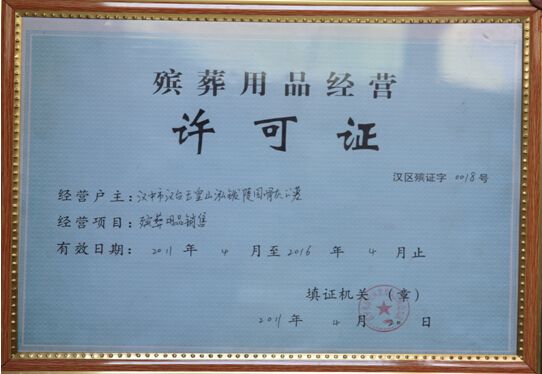 殡葬用品经营
许可证
汉区殡证字 0018号
经营户主:汉中市汉台玉皇山泓城陵园骨灰公墓
经营项目:殡葬用品销售
有效日期:2011年4月至2016年4月止
填证机关(章)
2011年4月20日